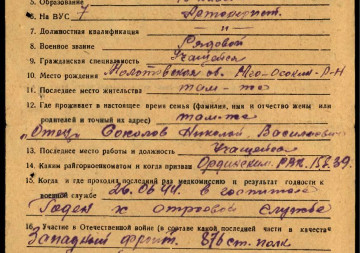 5. Образование
6. На ВУС 7
7. Должностная квалификация
8. Военное звание Рядовой
9. Гражданская специальность Учащейся
10. Место рождения Молотовская об.
11. Последнее место жительства там-же
12. Где проживает в настоящее время семья (фамилия, имя и отчество жены или
родителей и точный их адрес) там-же
"Отец" Соколов Николай Васильевич
13. Последнее место работы и должность Учащейся
14. Каким райгорвоенкоматом и когда призван Ординским РВК
15. Когда и где проходил последний раз медкомиссию и результат годности к
военной службе 26.06.44. в госпитале
Годен к строевой службе
16. Участие в Отечественной войне (в составе какой последней части в качестве
Западный фронт. 876 ст. полк